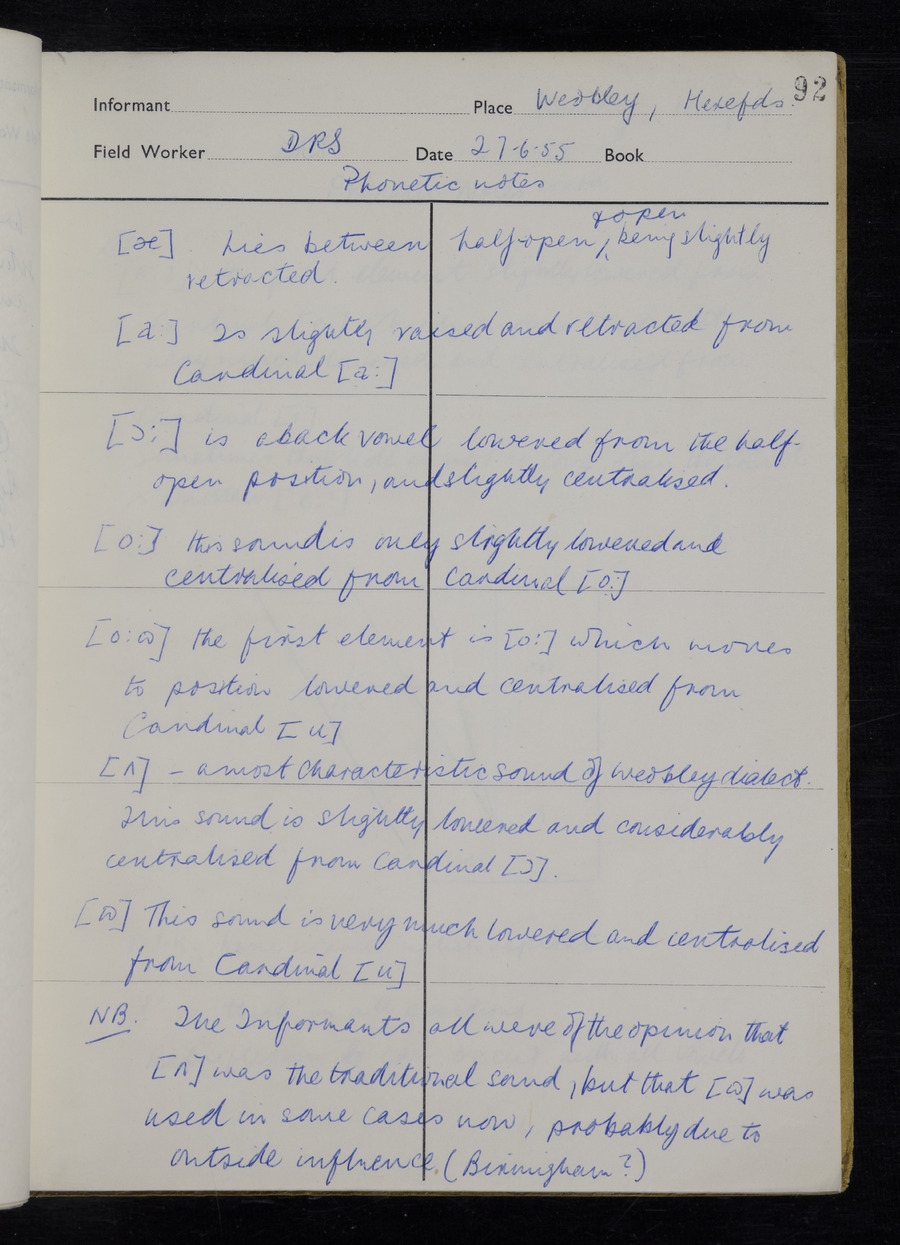 92
Informant Place Weobley, Herefds.
Field Worker DRS Date 27-6-55 Book
Phonetic notes
& open
[æ]. Lies between half-open, ‸ being slightly
retracted.
[a:] Is slightly raised and retracted from
Cardinal [a:]
[ɔ:] is a back vowel lowered from the half-
open position, and slightly centralised.
[o:] this sound is only slightly lowered and
centralised from Cardinal [o:]
[o:ɷ] the first element is [o:] which moves
to position lowered and centralised from
Cardinal [u]
[ʌ] – a most characteristic sound of Weobley dialect.
This sound is slightly lowered and considerably
centralised from Cardinal [ɔ].
[ɷ] This sound is very much lowered and centralised
from Cardinal [u]
NB. The Informants all were of the opinion that
[ʌ] was the traditional sound, but that [ɷ] was
used in some cases now, probably due to
outside influence. (Birmingham?)